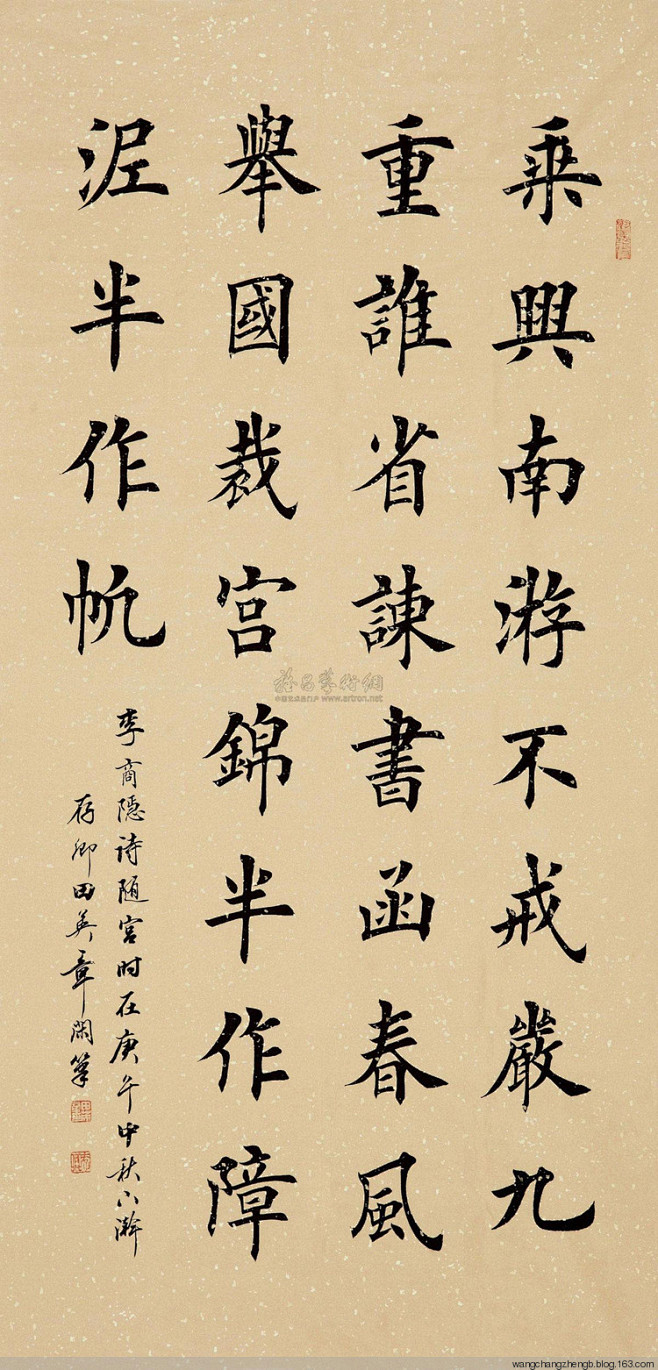 乘興南游不戒嚴九
重誰省諫書函春風
舉國裁宮錦半作障
泥半作帆
李商隐诗隋宫时在庚午中秋
存卿田英章閑筆
www.artron.net
wangchangzhengb.blog.163.com